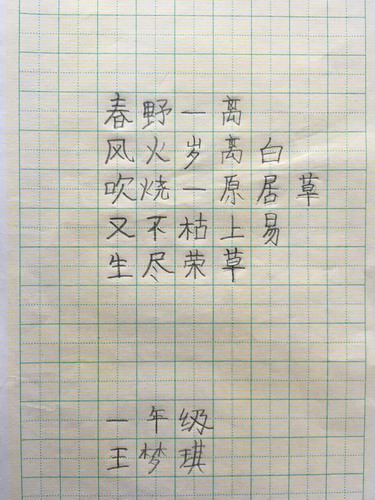 草
白居易
离离原上草
一岁一枯荣
野火烧不尽
春风吹又生
一年级
王梦琪